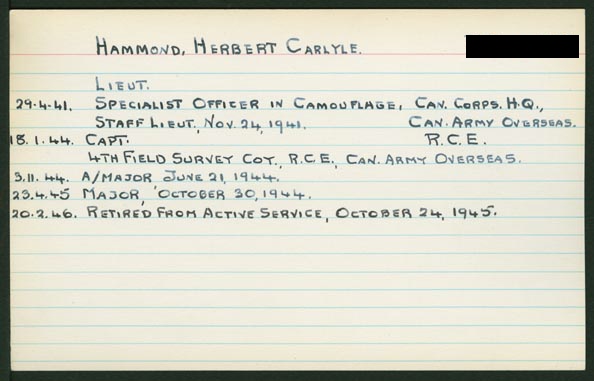 HAMMOND, HERBERT CARLYLE.
LIEUT.
29.4.41. SPECIALIST OFFICER IN CAMOUFLAGE, CAN. CORPS. H.Q.,
STAFF LIEUT., NOV. 24, 1941. CAN. ARMY OVERSEAS.
18.1.44. CAPT. R.C.E.
4TH FIELD SURVEY COY., R.C.E., CAN. ARMY OVERSEAS.
3.11.44. A/MAJOR JUNE 21, 1944.
23.4.45 MAJOR, OCTOBER 30, 1944.
20.2.46. RETIRED FROM ACTIVE SERVICE, OCTOBER 24, 1945.